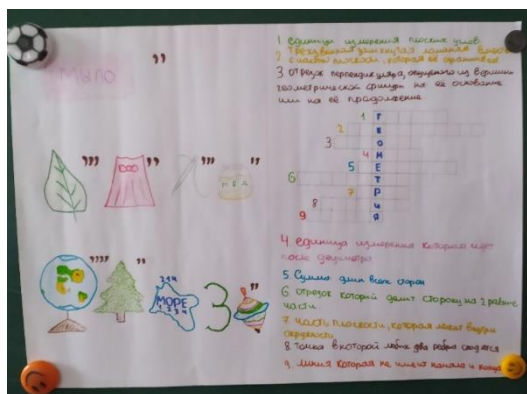 мыло ,,
,,, ,, ,,, ,,
МЁД
,,,, ,,, ,,
2 3 4
МОРЕ
1 2 3 4
3
1 единица измерения плоских углов
2 Трёхзвенная замкнутая ломаная вместе
с частью плоскости, которая её ограничив
3 Отрезок перпендикуляра, опущенного из вершины
геометрической фигуры на её основание
или на её продолжение
1 Г
2 Е
3 О
4 М
5 Е
6 Т
7 Р
8 И
9 Я
4. единица измерения которая идёт
после дециметра
5. Сумма длин всех сторон
6 отрезок который делит сторону на 2 равные
части
7. часть плоскости, которая лежит внутри
окружности
8 Точка в которой любых два ребра сходятся
9. линия которая не имеет начала и конца